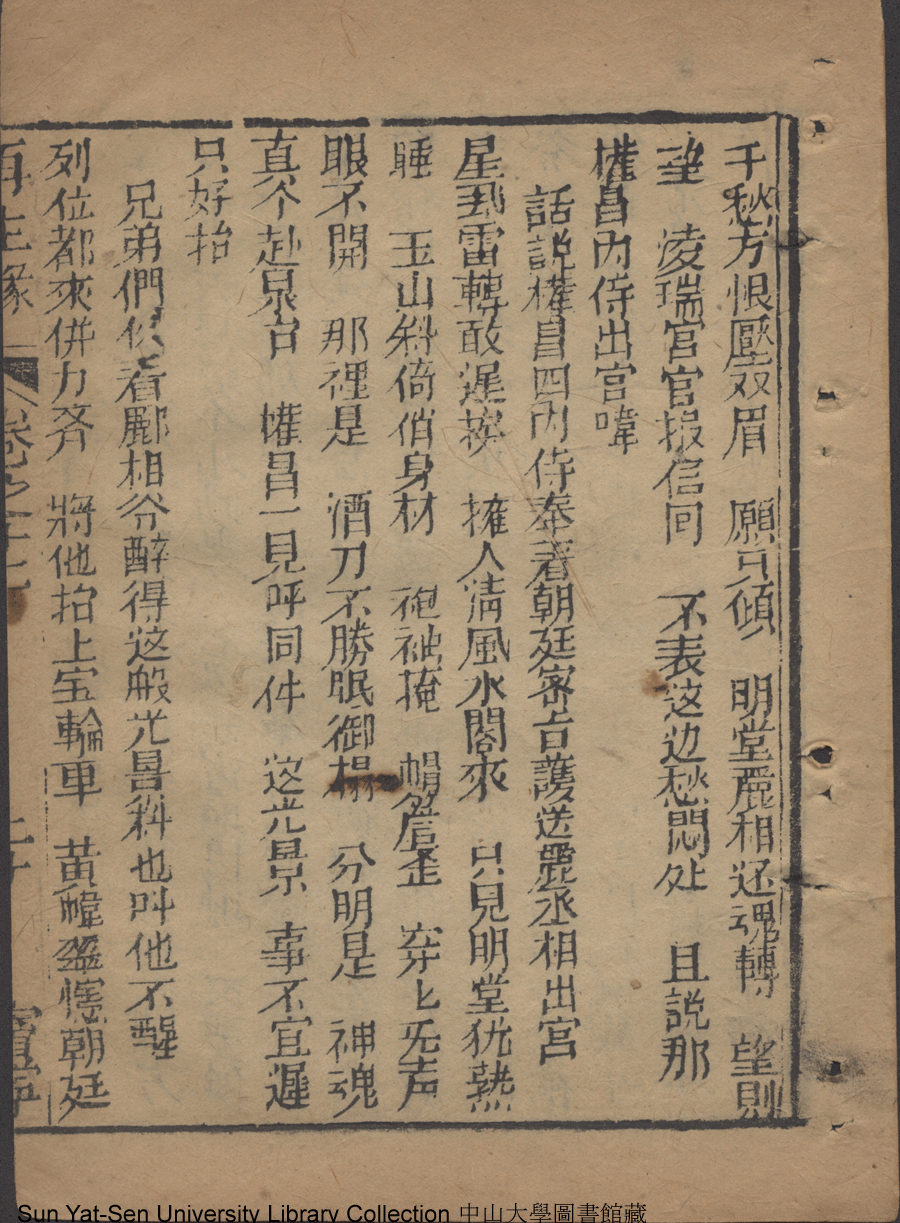 千愁方恨壓双眉 願只傾 明堂麗相还魂轉 望則
望 凌瑞宫官报信囘 不表这边愁悶处 且説那
權昌内侍出宫嗱
話説權昌四内侍奉着朝廷密㫖護送麗丞相出宫
星飛雷轉敢遅挨 擁入清風水閣來 只見明堂犹熟
睡 玉山斜倚俏身材 袍袖掩 帽簷歪 穽匕旡声
眼不開 那裡是 酒力不勝眠御榻 分明是 神魂
真个赴泉台 權昌一見呼同伴 这光景 事不宜遲
只好抬
兄弟們你看酈相爷醉得这般光景料也呌他不醒
列位都來併力齐 將他抬上宝輪車 黄幃遮 朝廷
再生緣 卷之十七
Sun Yat-Sen University Library Collection 中山大學圖書館藏